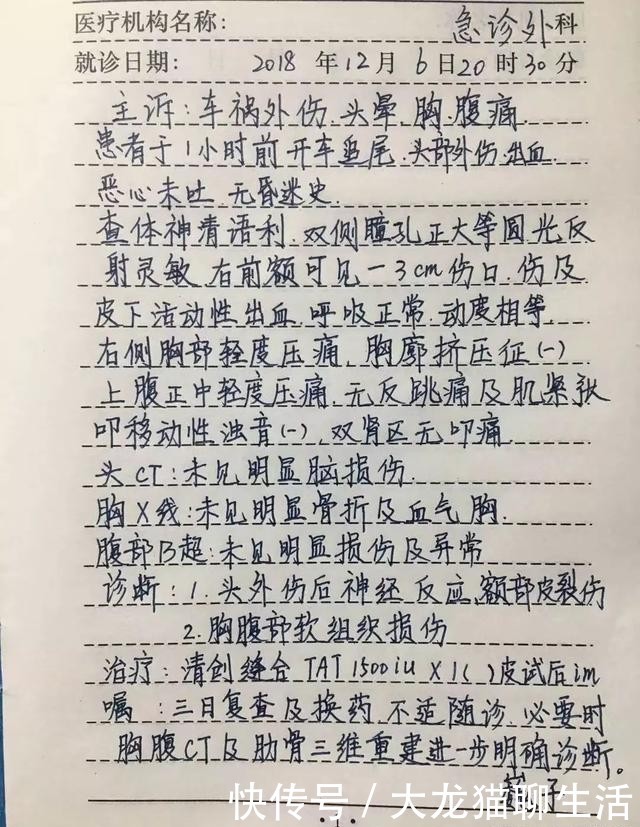 医疗机构名称: 急诊外科
就诊日期: 2018 年 12 月 6 日 20 时 30 分
主诉:车祸外伤.头晕.胸.腹痛
患者于1小时前开车追尾.头部外伤.出血
恶心未吐.无昏迷史.
查体神清语利.双侧瞳孔正大等圆.光反
射灵敏.右前额可见一3cm伤口.伤及
皮下活动性出血.呼吸正常.动度相等.
右侧胸部轻度压痛.胸廓挤压征(一)
上腹正中轻度压痛.无反跳痛及肌紧张
叩移动性浊音(一).双肾区无叩痛.
头CT:未见明显脑损伤.
胸X线:未见明显骨折及血气胸.
腹部B超:未见明显损伤及异常
诊断:1.头外伤后神经反应.额部皮裂伤
2.胸腹部软组织损伤
治疗:清创缝合 TAT 1500iu X1( )皮试后im
嘱:三日复查及换药.不适随诊.必要时
胸腹CT及肋骨三维重建进一步明确诊断。
快传号/大龙猫聊生活
1